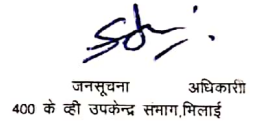 जनसूचना अधिकारी
400 के व्ही उपकेन्द्र संभाग,भिलाई